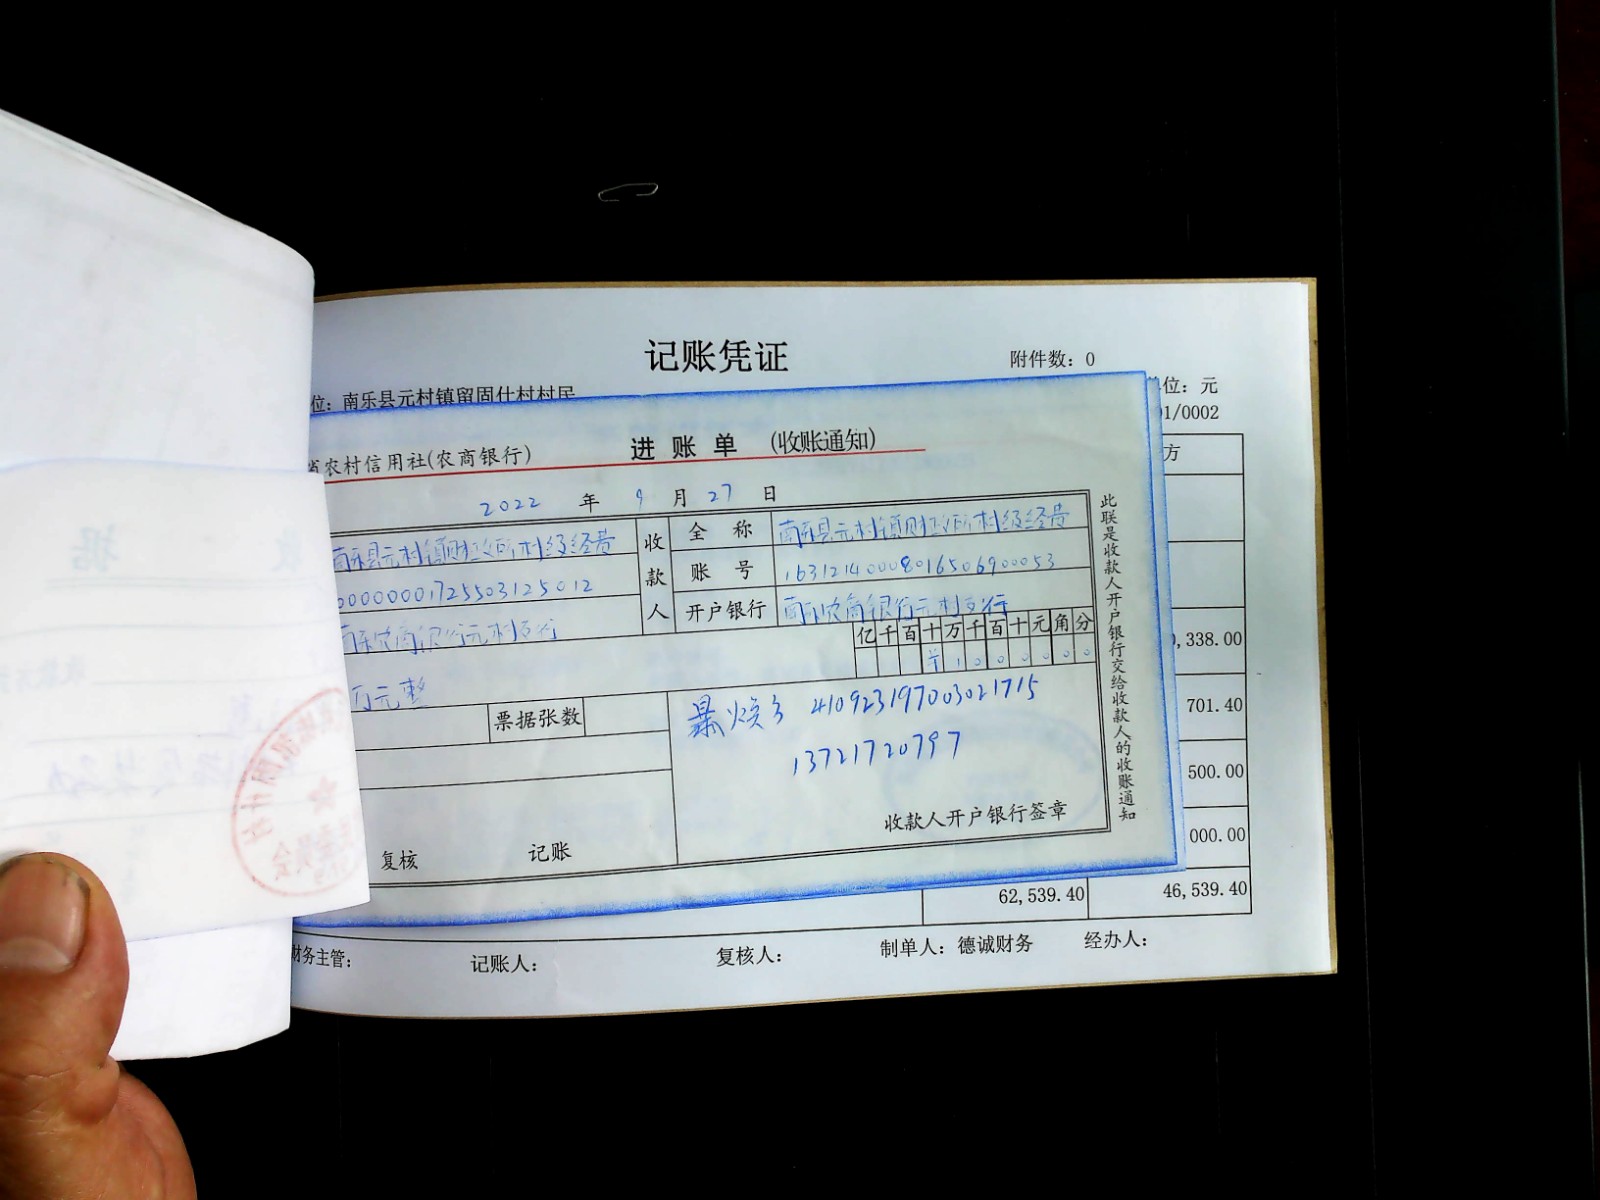 记账凭证
附件数：0
位：南乐县元村镇留固仕村村民
单位：元
01/0002
省农村信用社(农商银行)
进 账 单 (收账通知)
2022 年 9 月 27 日
南乐县元村镇财政所村级经费
收款人
全 称 南乐县元村镇财政所村级经费
00000001725503125012
账 号 16312140008016506900053
南乐农商银行元村支行
开户银行 南乐农商银行元村支行
亿千百十万千百十元角分
¥1000000
万元整
票据张数
410923197003021715
13721720797
收款人开户银行签章
复核 记账
此联是收款人开户银行交给收款人的收账通知
方
,338.00
701.40
500.00
000.00
62,539.40 46,539.40
财务主管：
记账人：
复核人：
制单人：德诚财务
经办人：